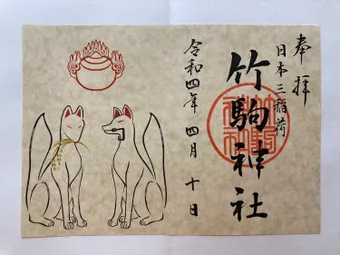 奉拝
日本三稲荷
竹駒神社
令和四年 四月 十日